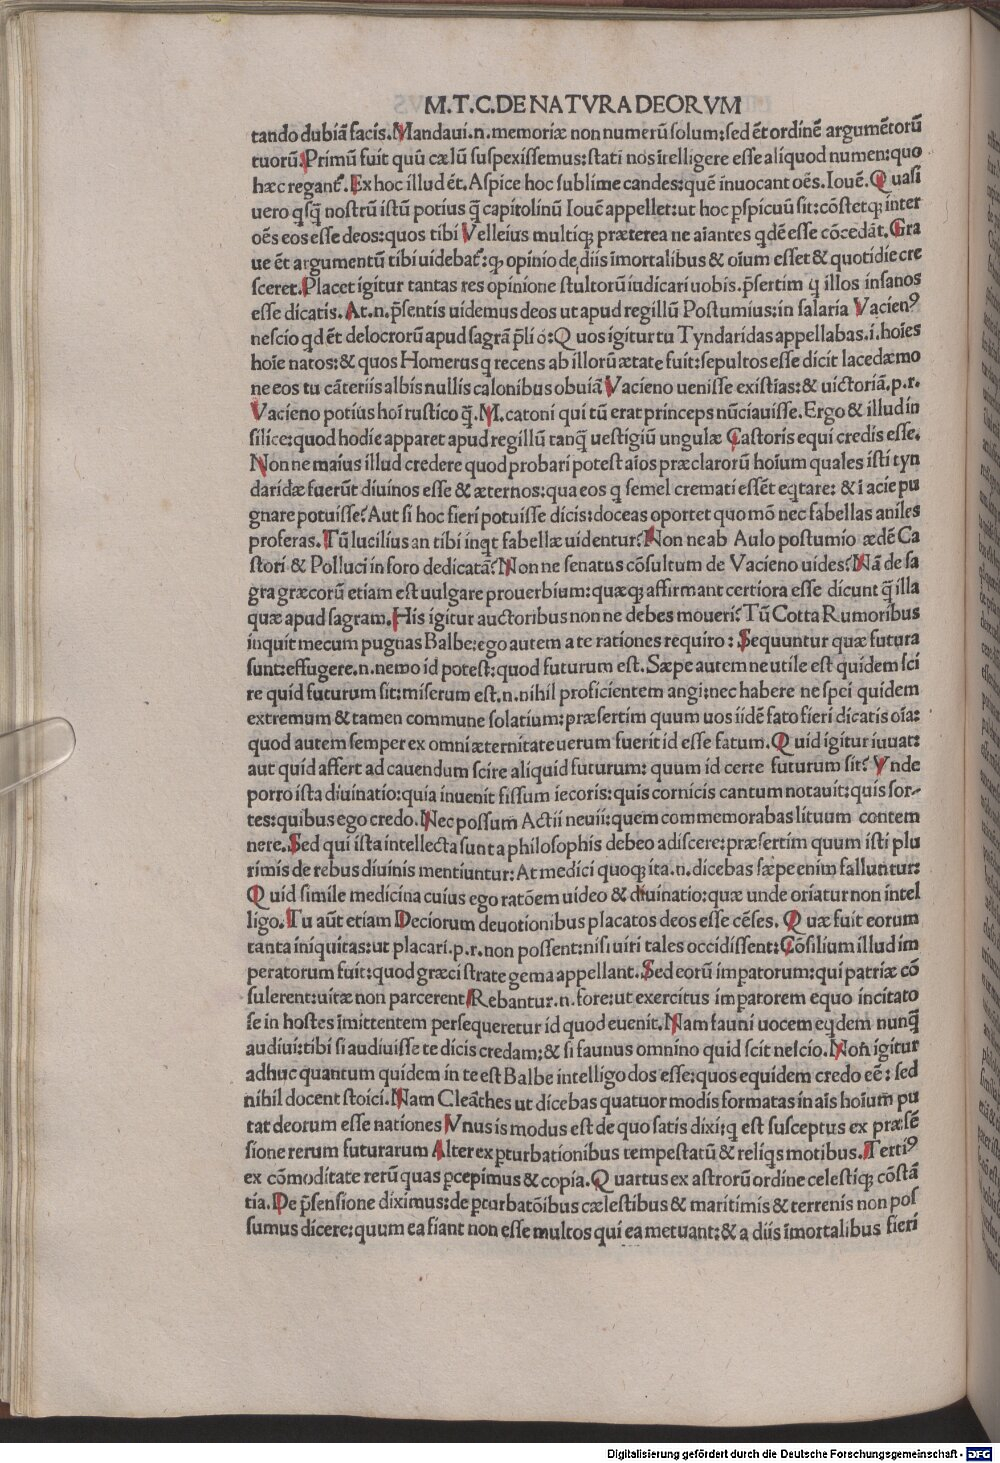 M.T.C.DE NATVRA DEORVM
tando dubiā facis.Mandaui.n.memoriæ non numerū solum:sed ēt ordinē argumētorū
tuorū.Primū fuit quū cælū suspexissemus:stati nos ītelligere esse aliquod numen:quo
hæc regant᷑.Ex hoc illud ēt.Aspice hoc sublime candes:quē inuocant oēs.Iouē.Quasi
uero qsq̄ nostrū istū potius q̄ capitolinū Iouē appellet:ut hoc ꝑspicuū sit:cōstetqꝫ inter
oēs eos esse deos:quos tibi Velleius multiqꝫ præterea ne aīantes qdē esse cōcedāt.Gra
ue ēt argumentū tibi uidebat᷑:ꝙ opinio de diis īmortalibus & oīum esset & quotidie cre
sceret.Placet igitur tantas res opinione stultorū iudicari uobis.p̄sertim q illos insanos
esse dicatis.At.n.p̄sentis uidemus deos ut apud regillū Postumius:in salaria Vacienꝰ
nescio qd ēt de locrorū apud sagrā p̄lio:Quos igitur tu Tyndaridas appellabas.i.hoīes
hoīe natos:& quos Homerus q recens ab illorū ætate fuit:sepultos esse dicit lacedæmo
ne eos tu cāteriis albis nullis calonibus obuiā Vacieno uenisse existīas:& uictoriā.p.r.
Vacieno potius hoī rustico q̄.M.catoni qui tū erat princeps nūciauisse.Ergo & illud in
silice:quod hodie apparet apud regillū tanq̄ uestigiū ungulæ Castoris equi credis esse.
Nonne maius illud credere quod probari potest aīos præclarorū hoīum quales isti tyn
daridæ fuerūt diuinos esse & æternos:qua eos q semel cremati essēt eqtare: & ī acie pu
gnare potuisse?Aut si hoc fieri potuisse dicis:doceas oportet quo mō nec fabellas aniles
proferas.Tū lucilius an tibi inqt fabellæ uidentur?Nonne ab Aulo postumio ædē Ca
stori & Polluci in foro dedicatā?Nonne senatus cōsultum de Vacieno uides?Nā de sa
gra græcorū etiam est uulgare prouerbium:quæqꝫ affirmant certiora esse dicunt q̄ illa
quæ apud sagram.His igitur auctoribus nonne debes moueri?Tū Cotta Rumoribus
inquit mecum pugnas Balbe:ego autem a te rationes requiro: Sequuntur quæ futura
sunt:effugere.n.nemo id potest:quod futurum est.Sæpe autem ne utile est quidem sci
re quid futurum sit:miserum est.n.nihil proficientem angi:nec habere ne spei quidem
extremum & tamen commune solatium:præsertim quum uos iidē fato fieri dicatis oīa:
quod autem semper ex omni æternitate uerum fuerit id esse fatum.Quid igitur iuuat:
aut quid affert ad cauendum scire aliquid futurum: quum id certe futurum sit? Vnde
porro ista diuinatio:quia inuenit fissum iecoris:quis cornicis cantum notauit:quis sor-
tes:quibus ego credo.Nec possum Actii neuii:quem commemorabas lituum contem
nere.Sed qui ista intellecta sunt a philosophis debeo adiscere:præsertim quum isti plu
rimis de rebus diuinis mentiuntur:At medici quoqꝫ ita.n.dicebas sæpe enim falluntur:
Quid simile medicina cuius ego ratōem uideo & diuinatio:quæ unde oriatur non intel
ligo.Tu aūt etiam Deciorum deuotionibus placatos deos esse cēses. Quæ fuit eorum
tanta iniquitas:ut placari.p.r.non possent:nisi uiri tales occidissent:Cōsilium illud im
peratorum fuit:quod græci strategema appellant.Sed eorū imꝑatorum:qui patriæ cō
sulerent:uitæ non parcerent Rebantur.n.fore:ut exercitus imꝑatorem equo incitato
se in hostes īmittentem persequeretur id quod euenit.Nam fauni uocem eqdem nunq̄
audiui:tibi si audiuisse te dicis credam:& si faunus omnino quid scit nescio.Non igitur
adhuc quantum quidem in te est Balbe intelligo dos esse:quos equidem credo eē: sed
nihil docent stoici.Nam Cleāthes ut dicebas quatuor modis formatas in aīs hoīum pu
tat deorum esse nationes Vnus is modus est de quo satis dixi:q est susceptus ex præsē
sione rerum futurarum Alter ex ꝑturbationibus tempestatū & reliqs motibus.Tertiꝰ
ex cōmoditate rerū quas ꝑcepimus & copia.Quartus ex astrorū ordine celestiqꝫ cōstā
tia.De p̄sensione diximus:de ꝑturbatōibus cælestibus & maritimis & terrenis non pos
sumus dicere:quum ea fiant non esse multos qui ea metuant:& a diis īmortalibus fieri
Digitalisierung gefördert durch die Deutsche Forschungsgemeinschaft - DFG